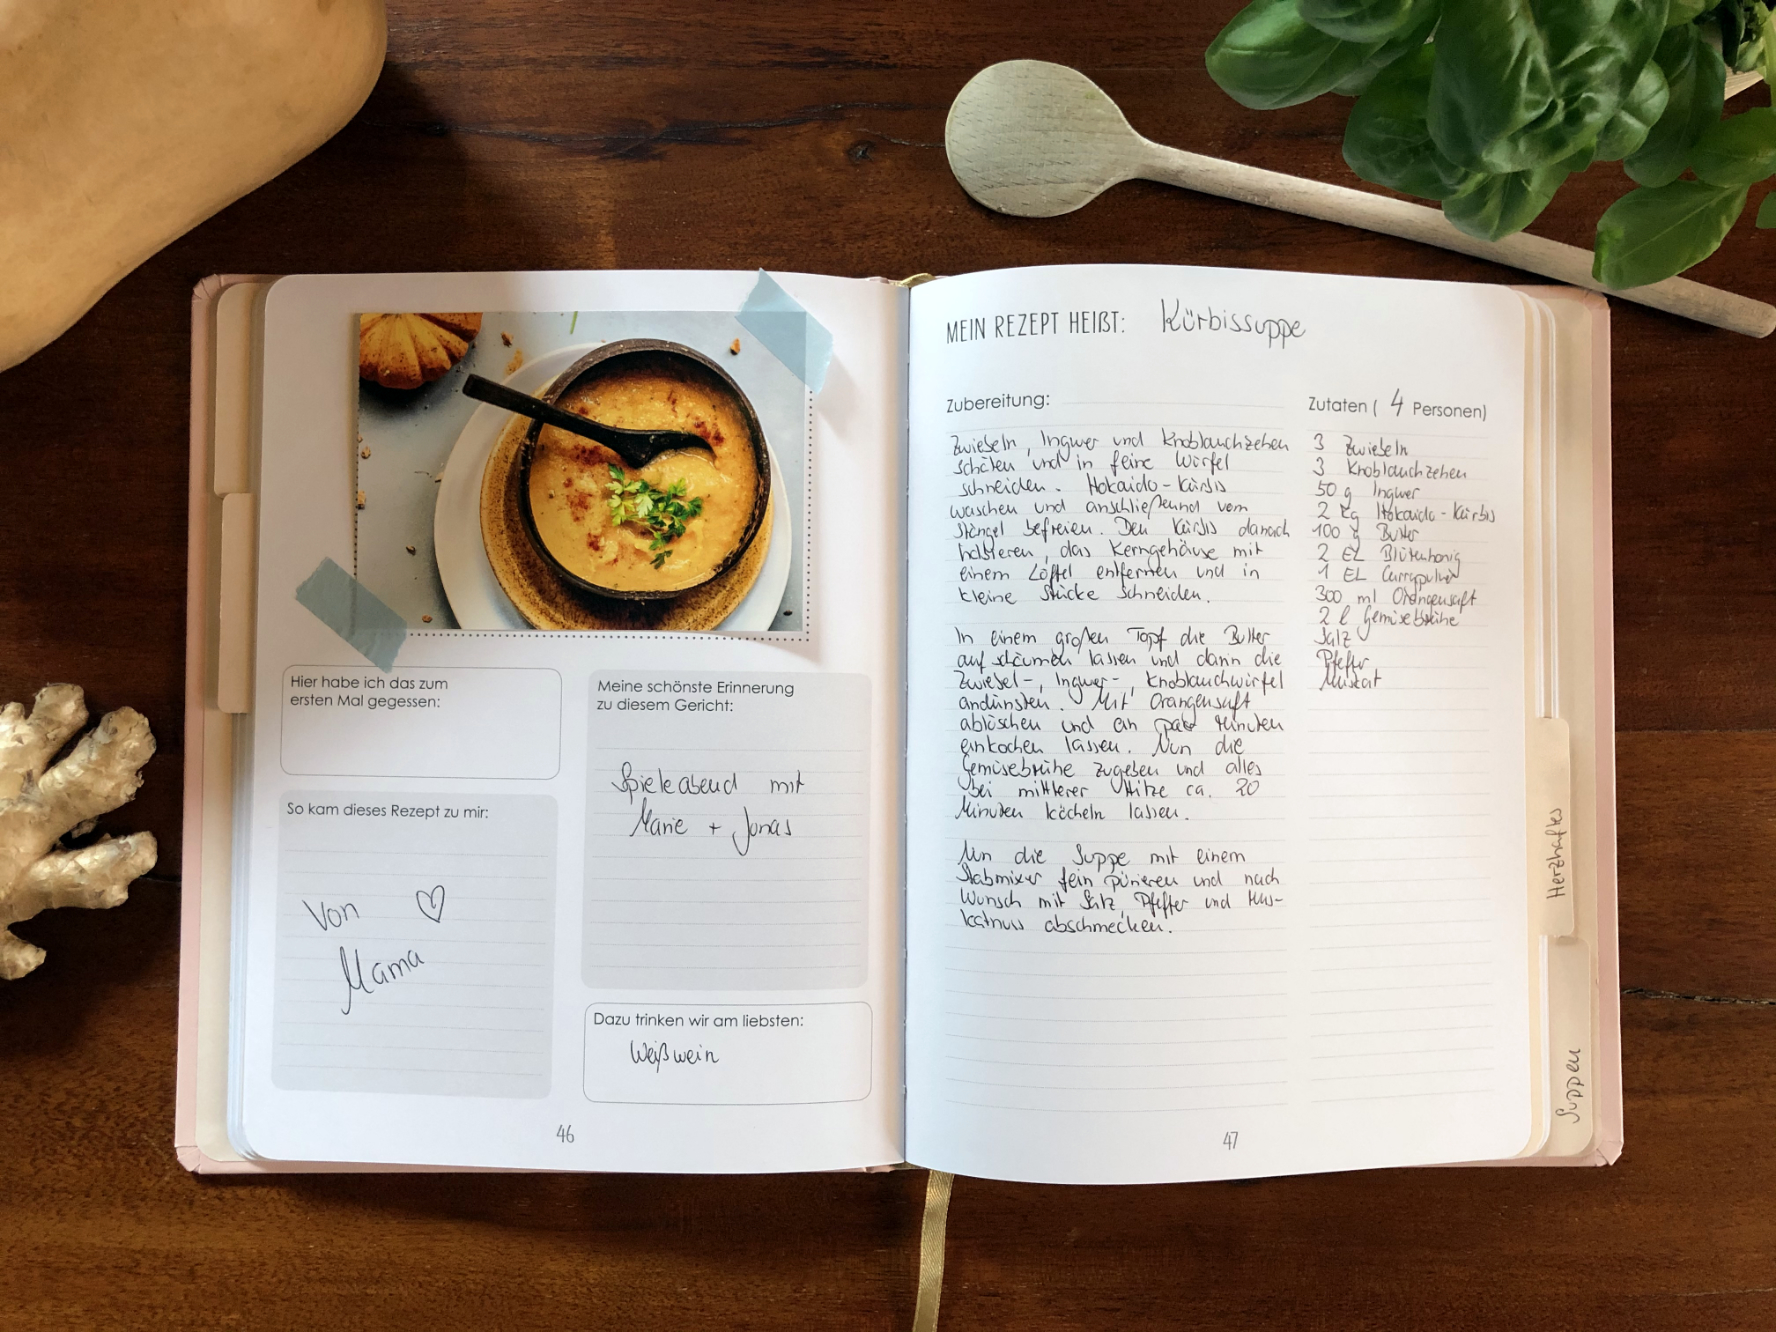 Hier habe ich das zum
ersten Mal gegessen:
So kam dieses Rezept zu mir:
Von ♡
Mama
Meine schönste Erinnerung
zu diesem Gericht:
Spieleabend mit
Marie + Jonas
Dazu trinken wir am liebsten:
Weißwein
46
MEIN REZEPT HEIßT: Kürbissuppe
Zubereitung:
Zwiebeln, Ingwer und Knoblauchzehen
schälen und in feine Würfel
schneiden. Hokaido-Kürbis
waschen und anschließend vom
Stängel befreien. Den Kürbis danach
halbieren, das Kerngehäuse mit
einem Löffel entfernen und in
kleine Stücke schneiden.
In einem großen Topf die Butter
aufschäumen lassen und dann die
Zwiebel-, Ingwer-, Knoblauchwürfel
andünsten. Mit Orangensaft
ablöschen und ein paar Minuten
einkochen lassen. Nun die
Gemüsebrühe zugeben und alles
bei mittlerer Hitze ca. 20
Minuten köcheln lassen.
Nun die Suppe mit einem
Stabmixer fein pürieren und nach
Wunsch mit Salz, Pfeffer und Mus-
katnuss abschmecken.
Zutaten ( 4 Personen)
3 Zwiebeln
3 Knoblauchzehen
50 g Ingwer
2 kg Hokaido-Kürbis
100 g Butter
2 EL Blütenhonig
1 EL Currypulver
300 ml Orangensaft
2 l Gemüsebrühe
Salz
Pfeffer
Muskat
47
Herzhaftes
Suppen